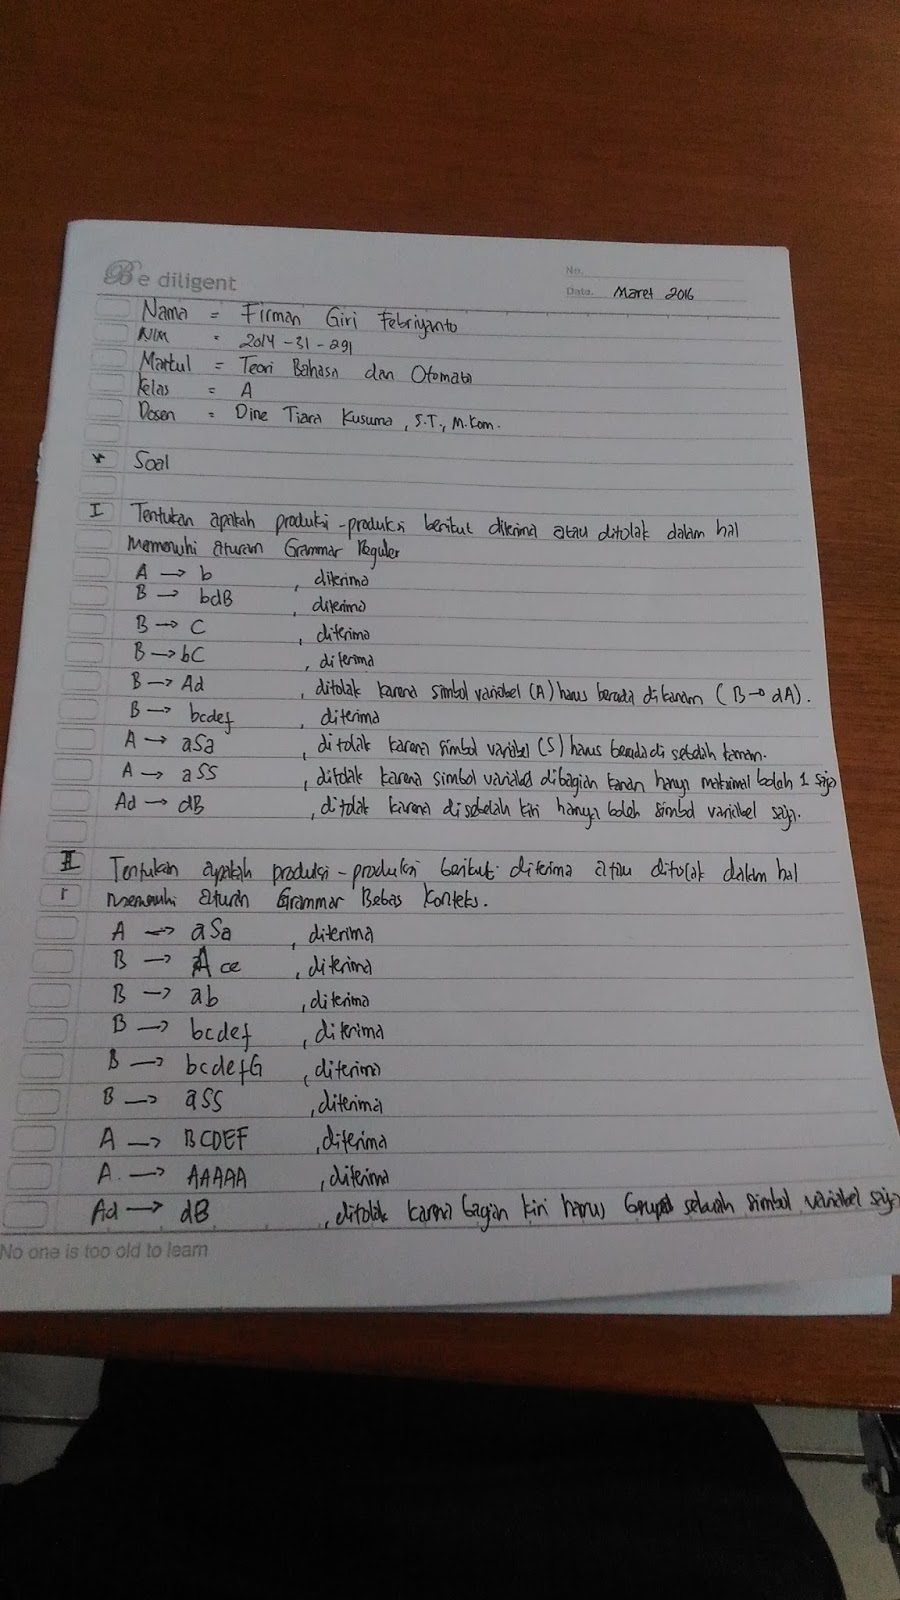 Be diligent
No.
Date. Maret 2016
Nama = Firman Giri Febriyanto
NIM = 2014-31-291
Matkul = Teori Bahasa dan Otomata
Kelas = A
Dosen = Dine Tiara Kusuma, S.T., M.Kom.
* Soal
I Tentukan apakah produksi-produksi berikut diterima atau ditolak dalam hal
Memenuhi aturan Grammar Reguler
A → b , diterima
B → bdB , diterima
B → C , diterima
B → bC , diterima
B → Ad , ditolak karena simbol variabel (A) harus berada dikanan (B → dA).
B → bcdef , diterima
A → aSa , ditolak karena simbol variabel (S) harus berada di sebelah kanan.
A → aSS , ditolak karena simbol variabel dibagian kanan hanya maksimal boleh 1 saja
Ad → dB , ditolak karena disebelah kiri hanya boleh simbol variabel saja.
II Tentukan apakah produksi-produksi berikut diterima atau ditolak dalam hal
memenuhi aturan Grammar Bebas Konteks.
A → aSa , diterima
B → Ace , diterima
B → ab , diterima
B → bcdef , diterima
B → bcdefG , diterima
B → aSS , diterima
A → BCDEF , diterima
A → AAAAA , diterima
Ad → dB , ditolak karena bagian kiri harus berupa sebuah simbol variabel saja
No one is too old to learn